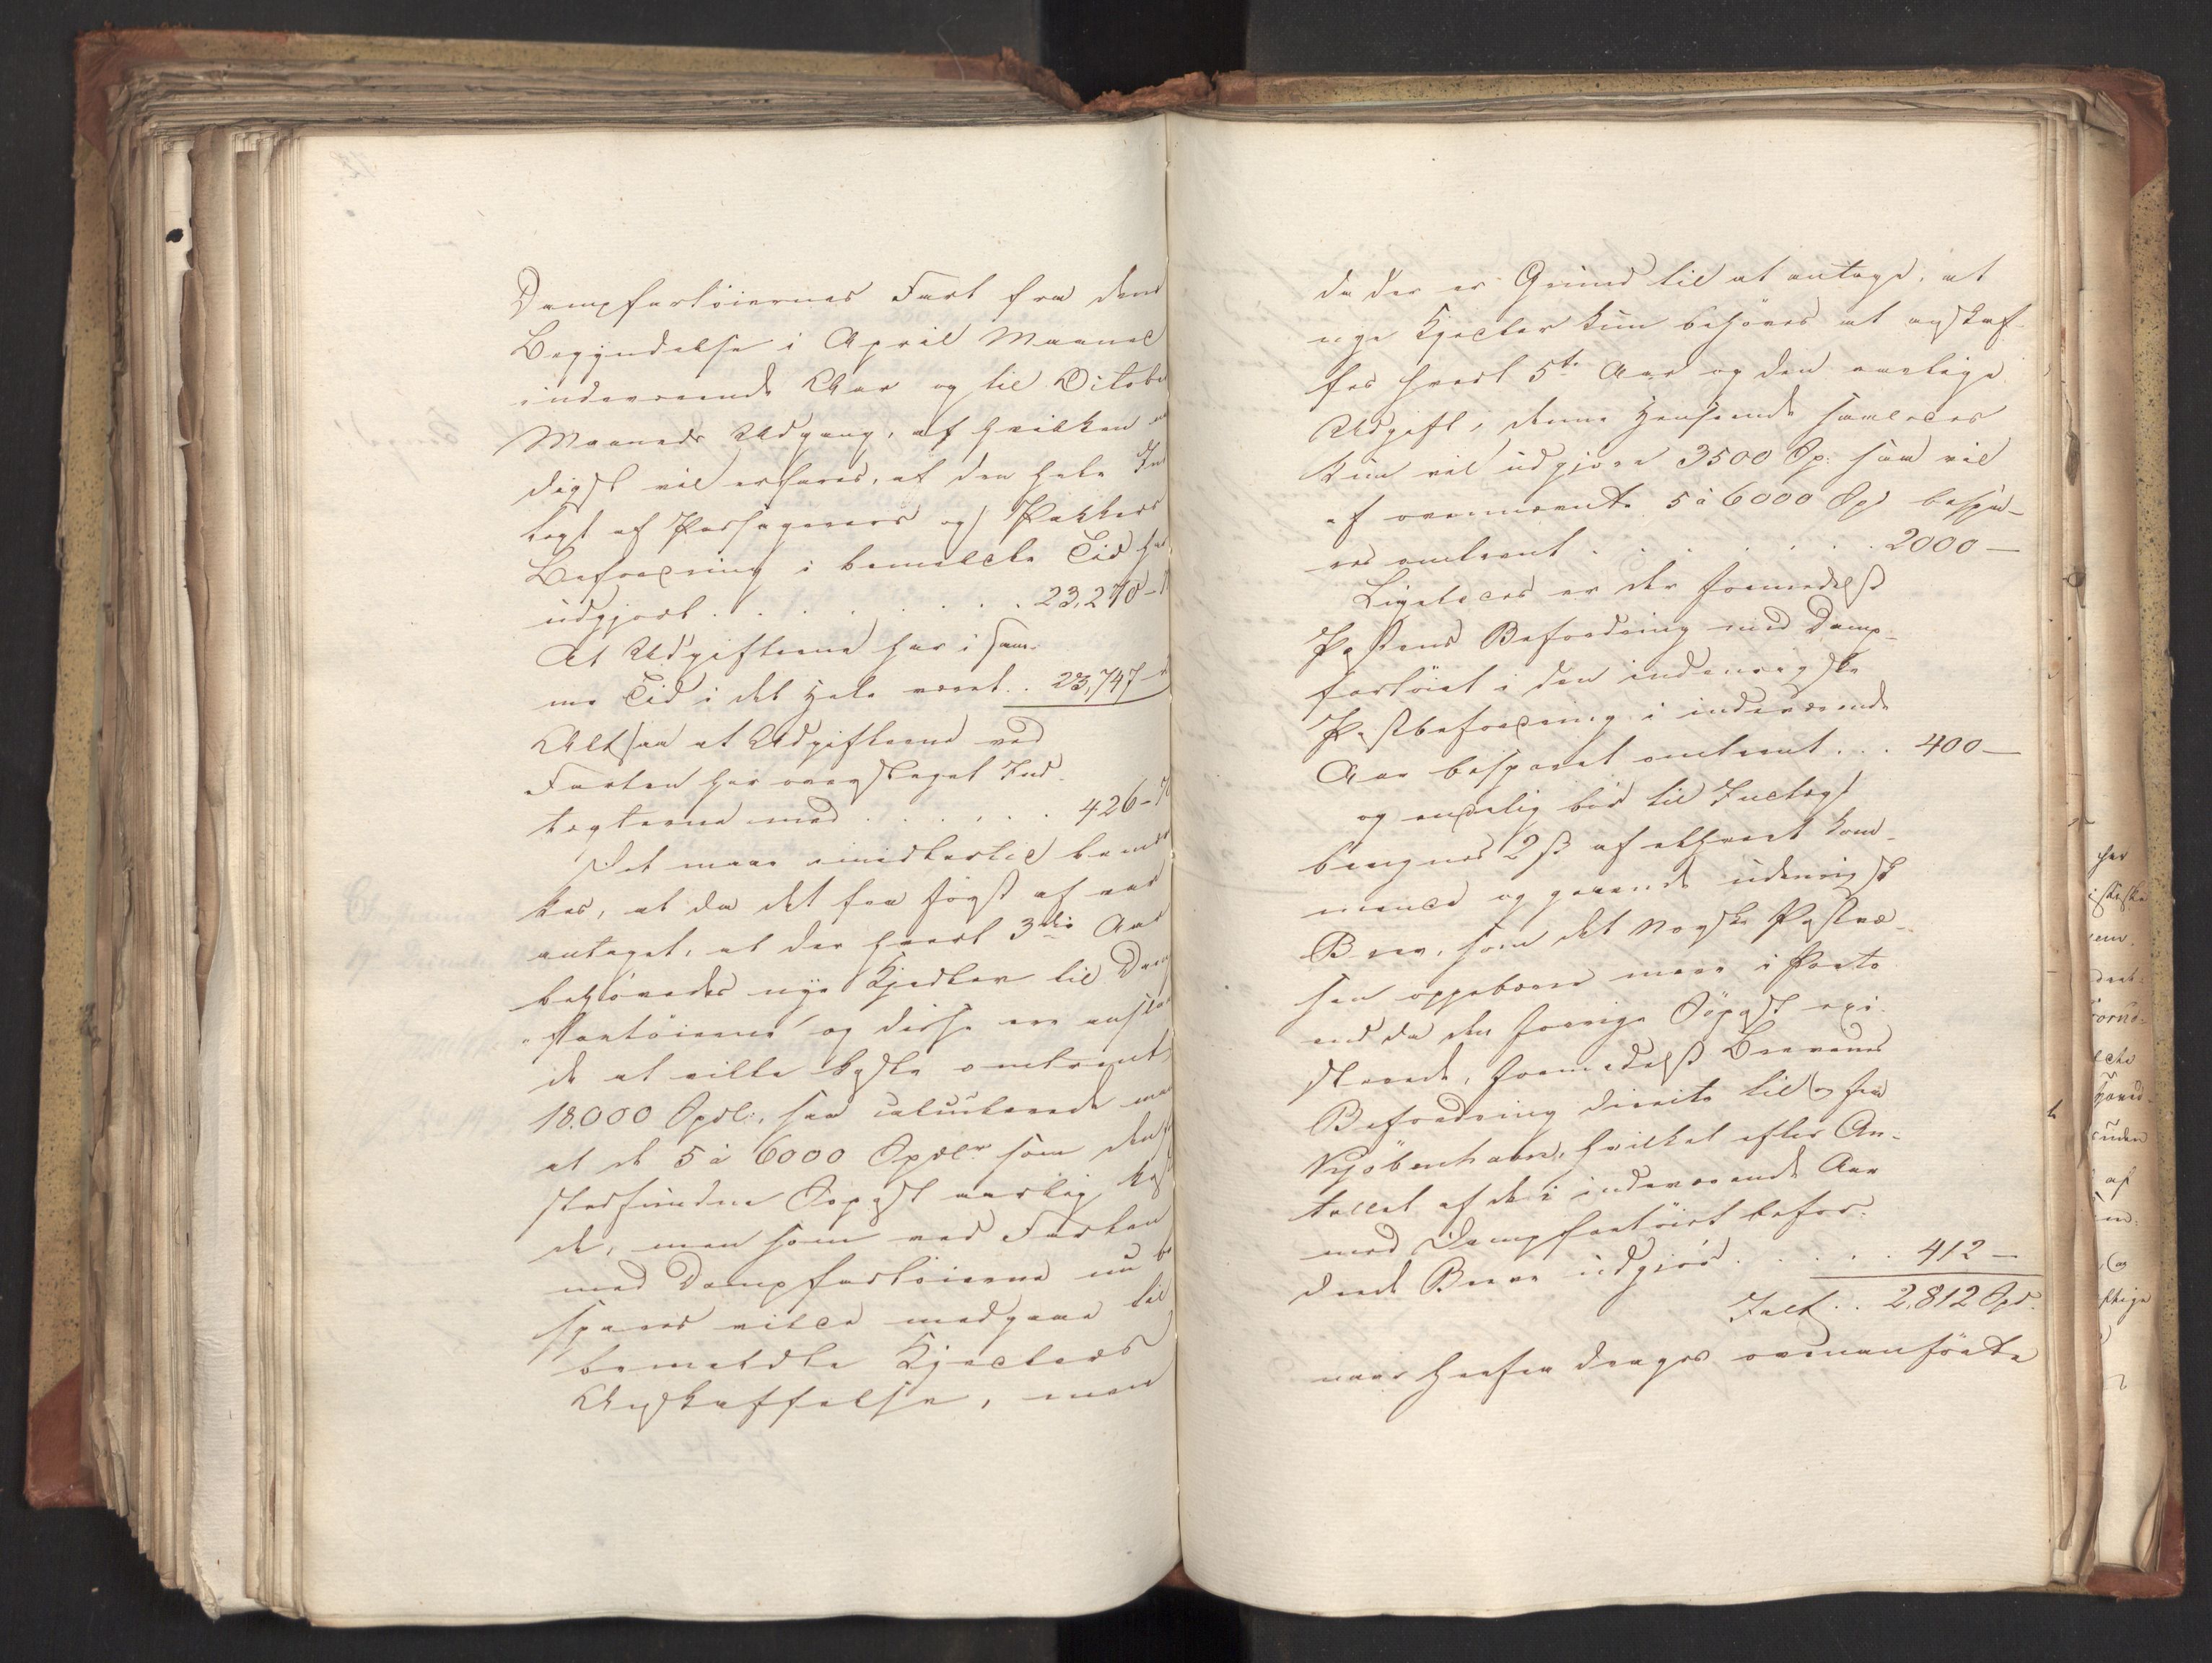 Dampfartöiernes Fart fra dens
Begÿndelse i April Maaned
indeværende Aar og til Octobe
Maaneds Udgang, af hvilken
digst vil erfares, at den hele Ind
tægt af Passagerers og Pakkers
Befordring i bemeldte Tid har
udgjort . . . . . . . . 23,270 -
At Udgifterne har i sam-
me Tid i det Hele været . . 23,747 -
Altsaa at Udgifterne ved
Farten har oversteget Ind-
tægterne med . . . . . . 426 -
Det maae imidlertid bemær
kes, at da det fra först af var
antaget, at der hvert 3die Aar
behövedes nÿe Kjedler til Dam
fartöierne og disse ere ansla
de at ville koste omtrent
18.000 Spdlr, saa calculerede ma
at de 5 à 6000 Spdlr som den
stedfundne Söpost aarlig kost
de, men som ved Farten
med Dampfartöierne nu be
spares vilde medgaae til
bemeldte Kjedlers
Anskaffelse, men
da der er Grund til at antage, at
nÿe Kjedler kun behöves at anskaf-
fes hvert 5te Aar og den aarlige
Udgift i denne Henseende saaledes
kun vil udgjöre 3500 Sp: saa vil
af ovennævnte 5 à 6000 Spd bespa-
res omtrent . . . . . . . 2000 —
Ligeledes er der formedelst
Postens Befordring med Damp-
fartöiet i den indenrigske
Postbefordring i indeværende
Aar besparet omtrent . . . 400 —
og endelig bör til Indtægt
beregnes 2 ß af ethvert kom-
mende og gaaende udenrigsk
Brev, som det Norske Postvæ-
sen oppebærer mere i Porto
end da den forrige Söpost exi-
sterede, formedelst Brevenes
Befordring directe til og fra
Kjöbenhavn, hvilket efter An-
tallet af de i indeværende Aar
med Dampfartöiet befor-
drede Breve udgjör . . . . . 412 —
Ialt . . 2,812 Spd.
naar herfra drages ovenanförte